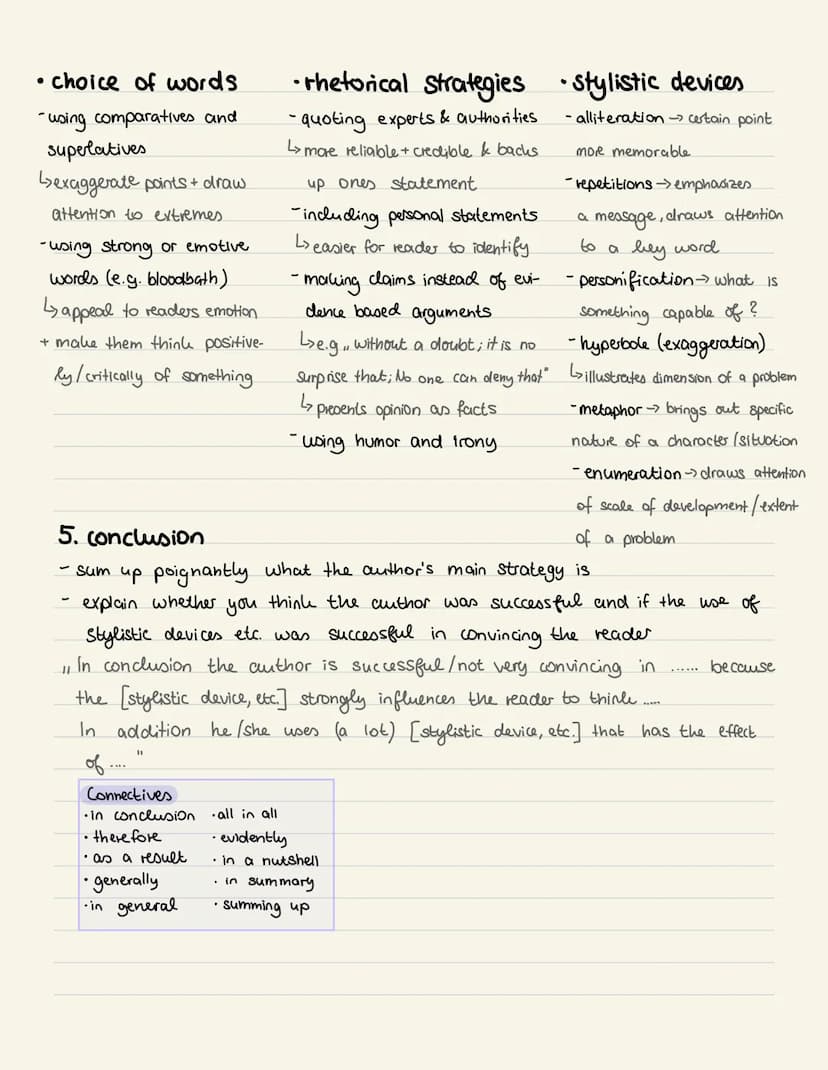 • choice of words
- using comparatives and
superlatives
↳exaggerate points + draw
attention to extremes
- using strong or emotive
words (e.g. bloodbath)
↳appeal to readers emotion
+ make them think positive-
ly/critically of something
• rhetorical strategies
- quoting experts & authorities
↳more reliable + credible & backs
up ones statement
- including personal statements
↳easier for reader to identify
- making claims instead of evi-
dence based arguments
↳e.g „without a doubt; it is no
surprise that; No one can deny that"
↳presents opinion as facts
- using humor and Irony
• stylistic devices
- alliteration → certain point
more memorable
- repetitions → emphasizes
a message, draws attention
to a key word
- personification → what is
something capable of?
- hyperbole (exaggeration)
↳illustrates dimension of a problem
- metaphor → brings out specific
nature of a character/situation
- enumeration → draws attention
of scale of development/extent
of a problem
5. conclusion
- sum up poignantly what the author's main strategy is
- explain whether you think the author was successful and if the use of
stylistic devices etc. was successful in convincing the reader
„In conclusion the author is successful/not very convincing in ...... because
the [stylistic device, etc.] strongly influences the reader to think .....
In addition he/she uses (a lot) [stylistic device, etc.] that has the effect
of .... "
Connectives
• in conclusion
• therefore
• as a result
• generally
• in general
• all in all
• evidently
• in a nutshell
• in summary
• summing up